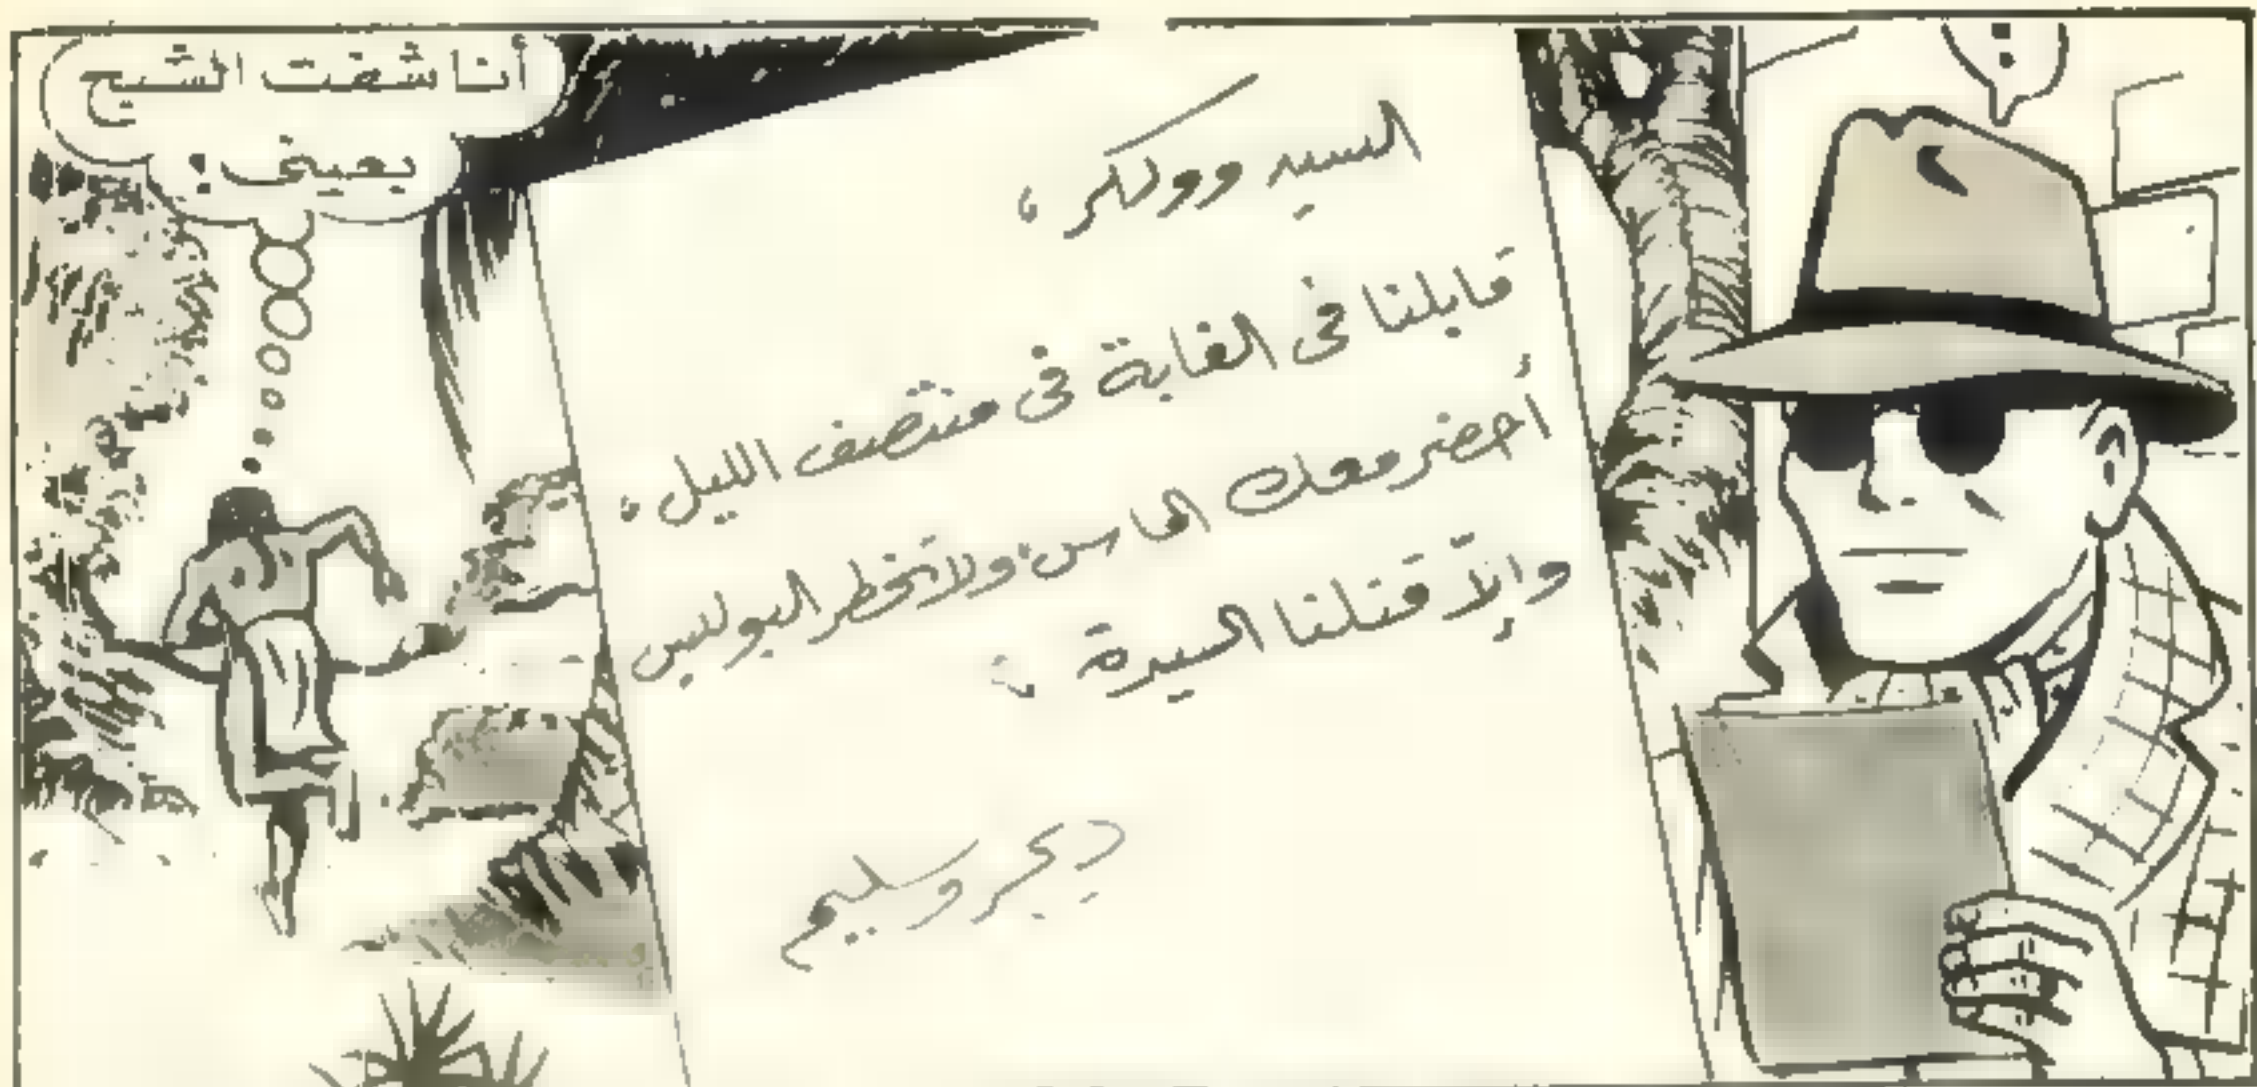 السيد وولكر،
قابلنا فى الغابة فى منتصف الليل،
أحضر معك الماس، ولا تخطر البوليس
وإلّا قتلنا السيدة.
ديجر وسليم
أنا شفت الشبح
بعينى!